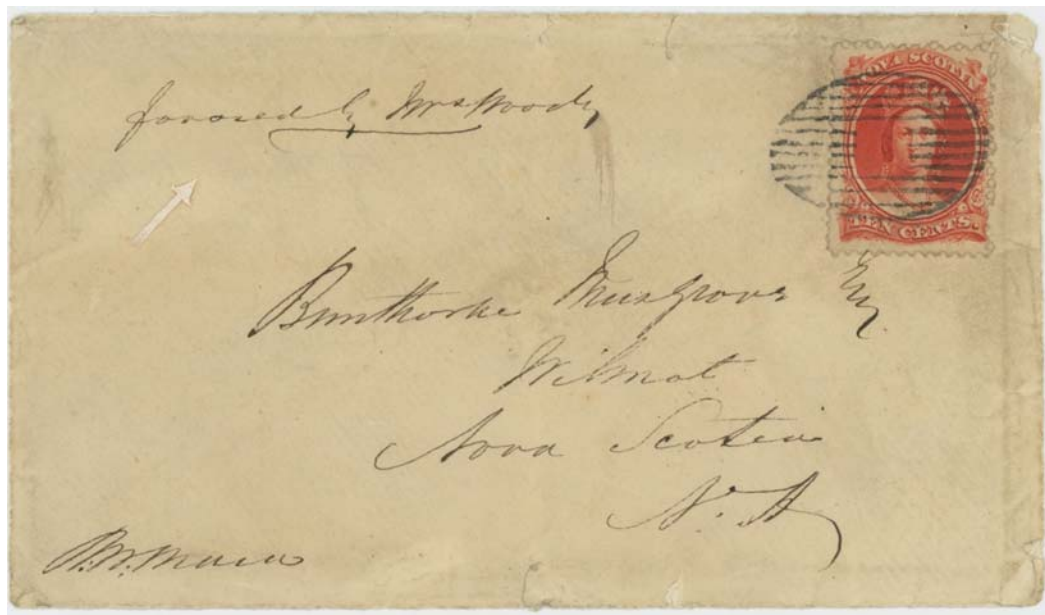 favored by Mrs Woody
NOVA SCOTIA
TEN CENTS.
Musgrove Esq
Wilmot
Nova Scotia
N. A